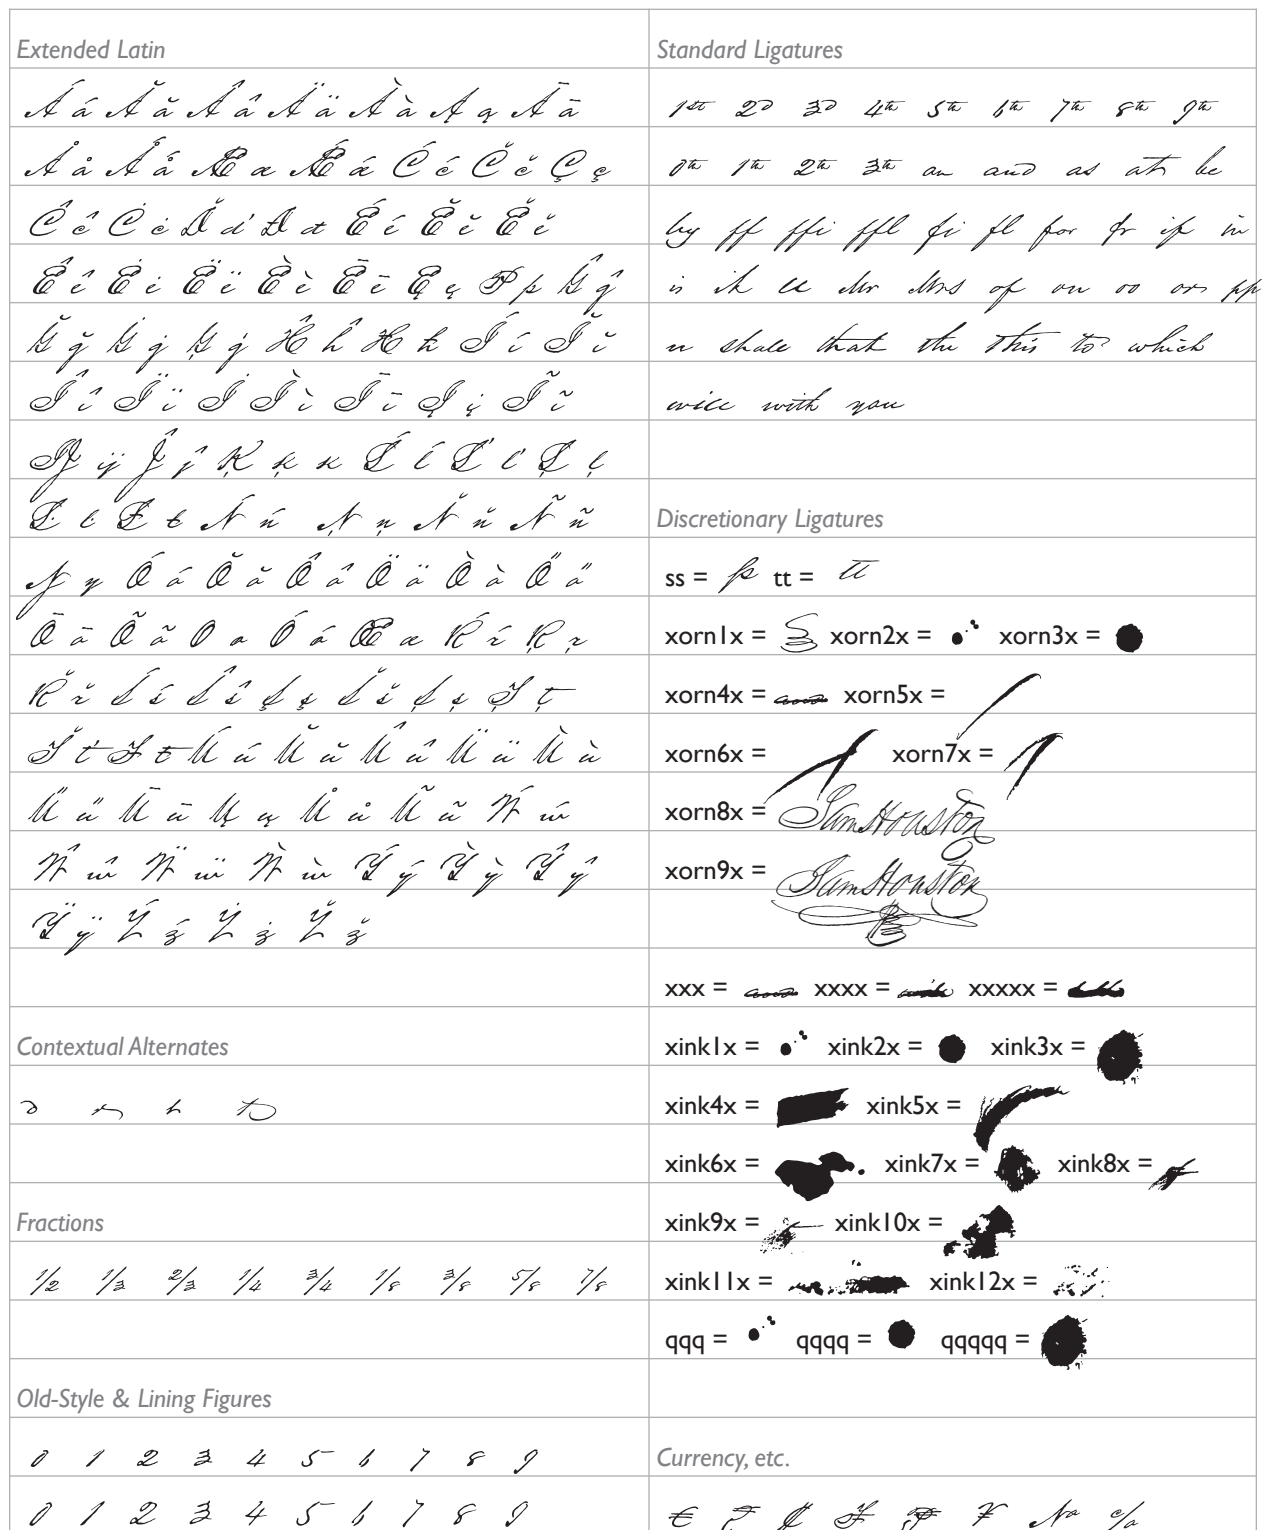 Extended Latin
Á á Ă ă Â â Ä ä À à Ą ą Ā ā
Å å Ǻ ǻ Æ æ Ǽ ǽ Ć ć Č č Ç ç
Ĉ ĉ Ċ ċ Ď ď Đ đ É é Ĕ ĕ Ě ě
Ê ê Ė ė Ë ë È è Ē ē Ę ę Þ þ Ĝ ĝ
Ğ ğ Ġ ġ Ģ ģ Ĥ ĥ Ħ ħ Í í Ĭ ĭ
Î î Ï ï İ Ì ì Ī ī Į į Ĩ ĩ
Ĳ ĳ Ĵ ĵ Ķ ķ ĸ Ĺ ĺ Ľ ľ Ļ ļ
Ŀ ŀ Ł ł Ń ń Ņ ņ Ň ň Ñ ñ
Ŋ ŋ Ó ó Ŏ ŏ Ô ô Ö ö Ò ò Ő ő
Ō ō Õ õ Ø ø Ǿ ǿ Œ œ Ŕ ŕ Ŗ ŗ
Ř ř Ś ś Ŝ ŝ Ş ş Š š Ș ș Ţ ţ
Ť ť Ŧ ŧ Ú ú Ŭ ŭ Û û Ü ü Ù ù
Ű ű Ū ū Ų ų Ů ů Ũ ũ Ẃ ẃ
Ŵ ŵ Ẅ ẅ Ẁ ẁ Ý ý Ỳ ỳ Ŷ ŷ
Ÿ ÿ Ź ź Ż ż Ž ž
Contextual Alternates
Fractions
1/2 1/3 2/3 1/4 3/4 1/8 3/8 5/8 7/8
Old-Style & Lining Figures
0 1 2 3 4 5 6 7 8 9
0 1 2 3 4 5 6 7 8 9
Standard Ligatures
1st 2d 3d 4th 5th 6th 7th 8th 9th
0th 1th 2th 3th an and as at be
by ff ffi ffl fi fl for fr if in
is it ll Mr Mrs of on oo or pp
rr shall that the this to which
will with you
Discretionary Ligatures
ss = tt =
xorn1x = xorn2x = xorn3x =
xorn4x = xorn5x =
xorn6x = xorn7x =
xorn8x = Sam Houston
xorn9x = Sam Houston
xxx = xxxx = xxxxx =
xink1x = xink2x = xink3x =
xink4x = xink5x =
xink6x = xink7x = xink8x =
xink9x = xink10x =
xink11x = xink12x =
qqq = qqqq = qqqqq =
Currency, etc.
€